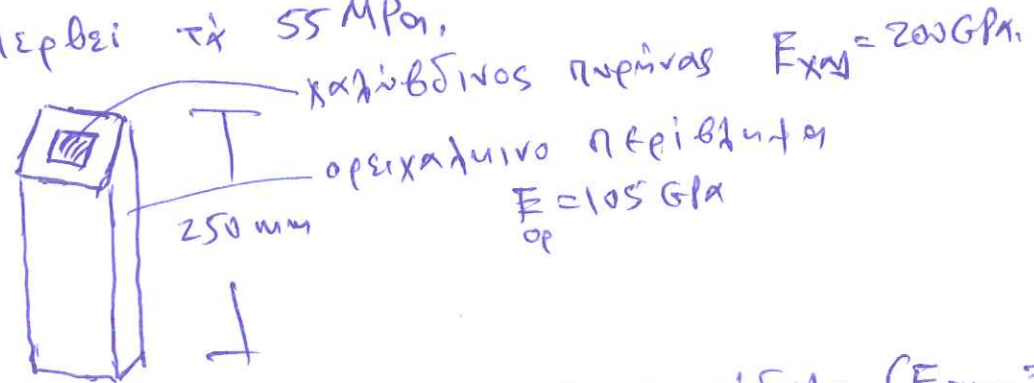 τὰ 55 MPa.
χαλύβδινος πυρήνας Eχαλ = 200 GPa.
ορειχάλκινο περίβλημα
Eορ = 105 GPa
250 mm